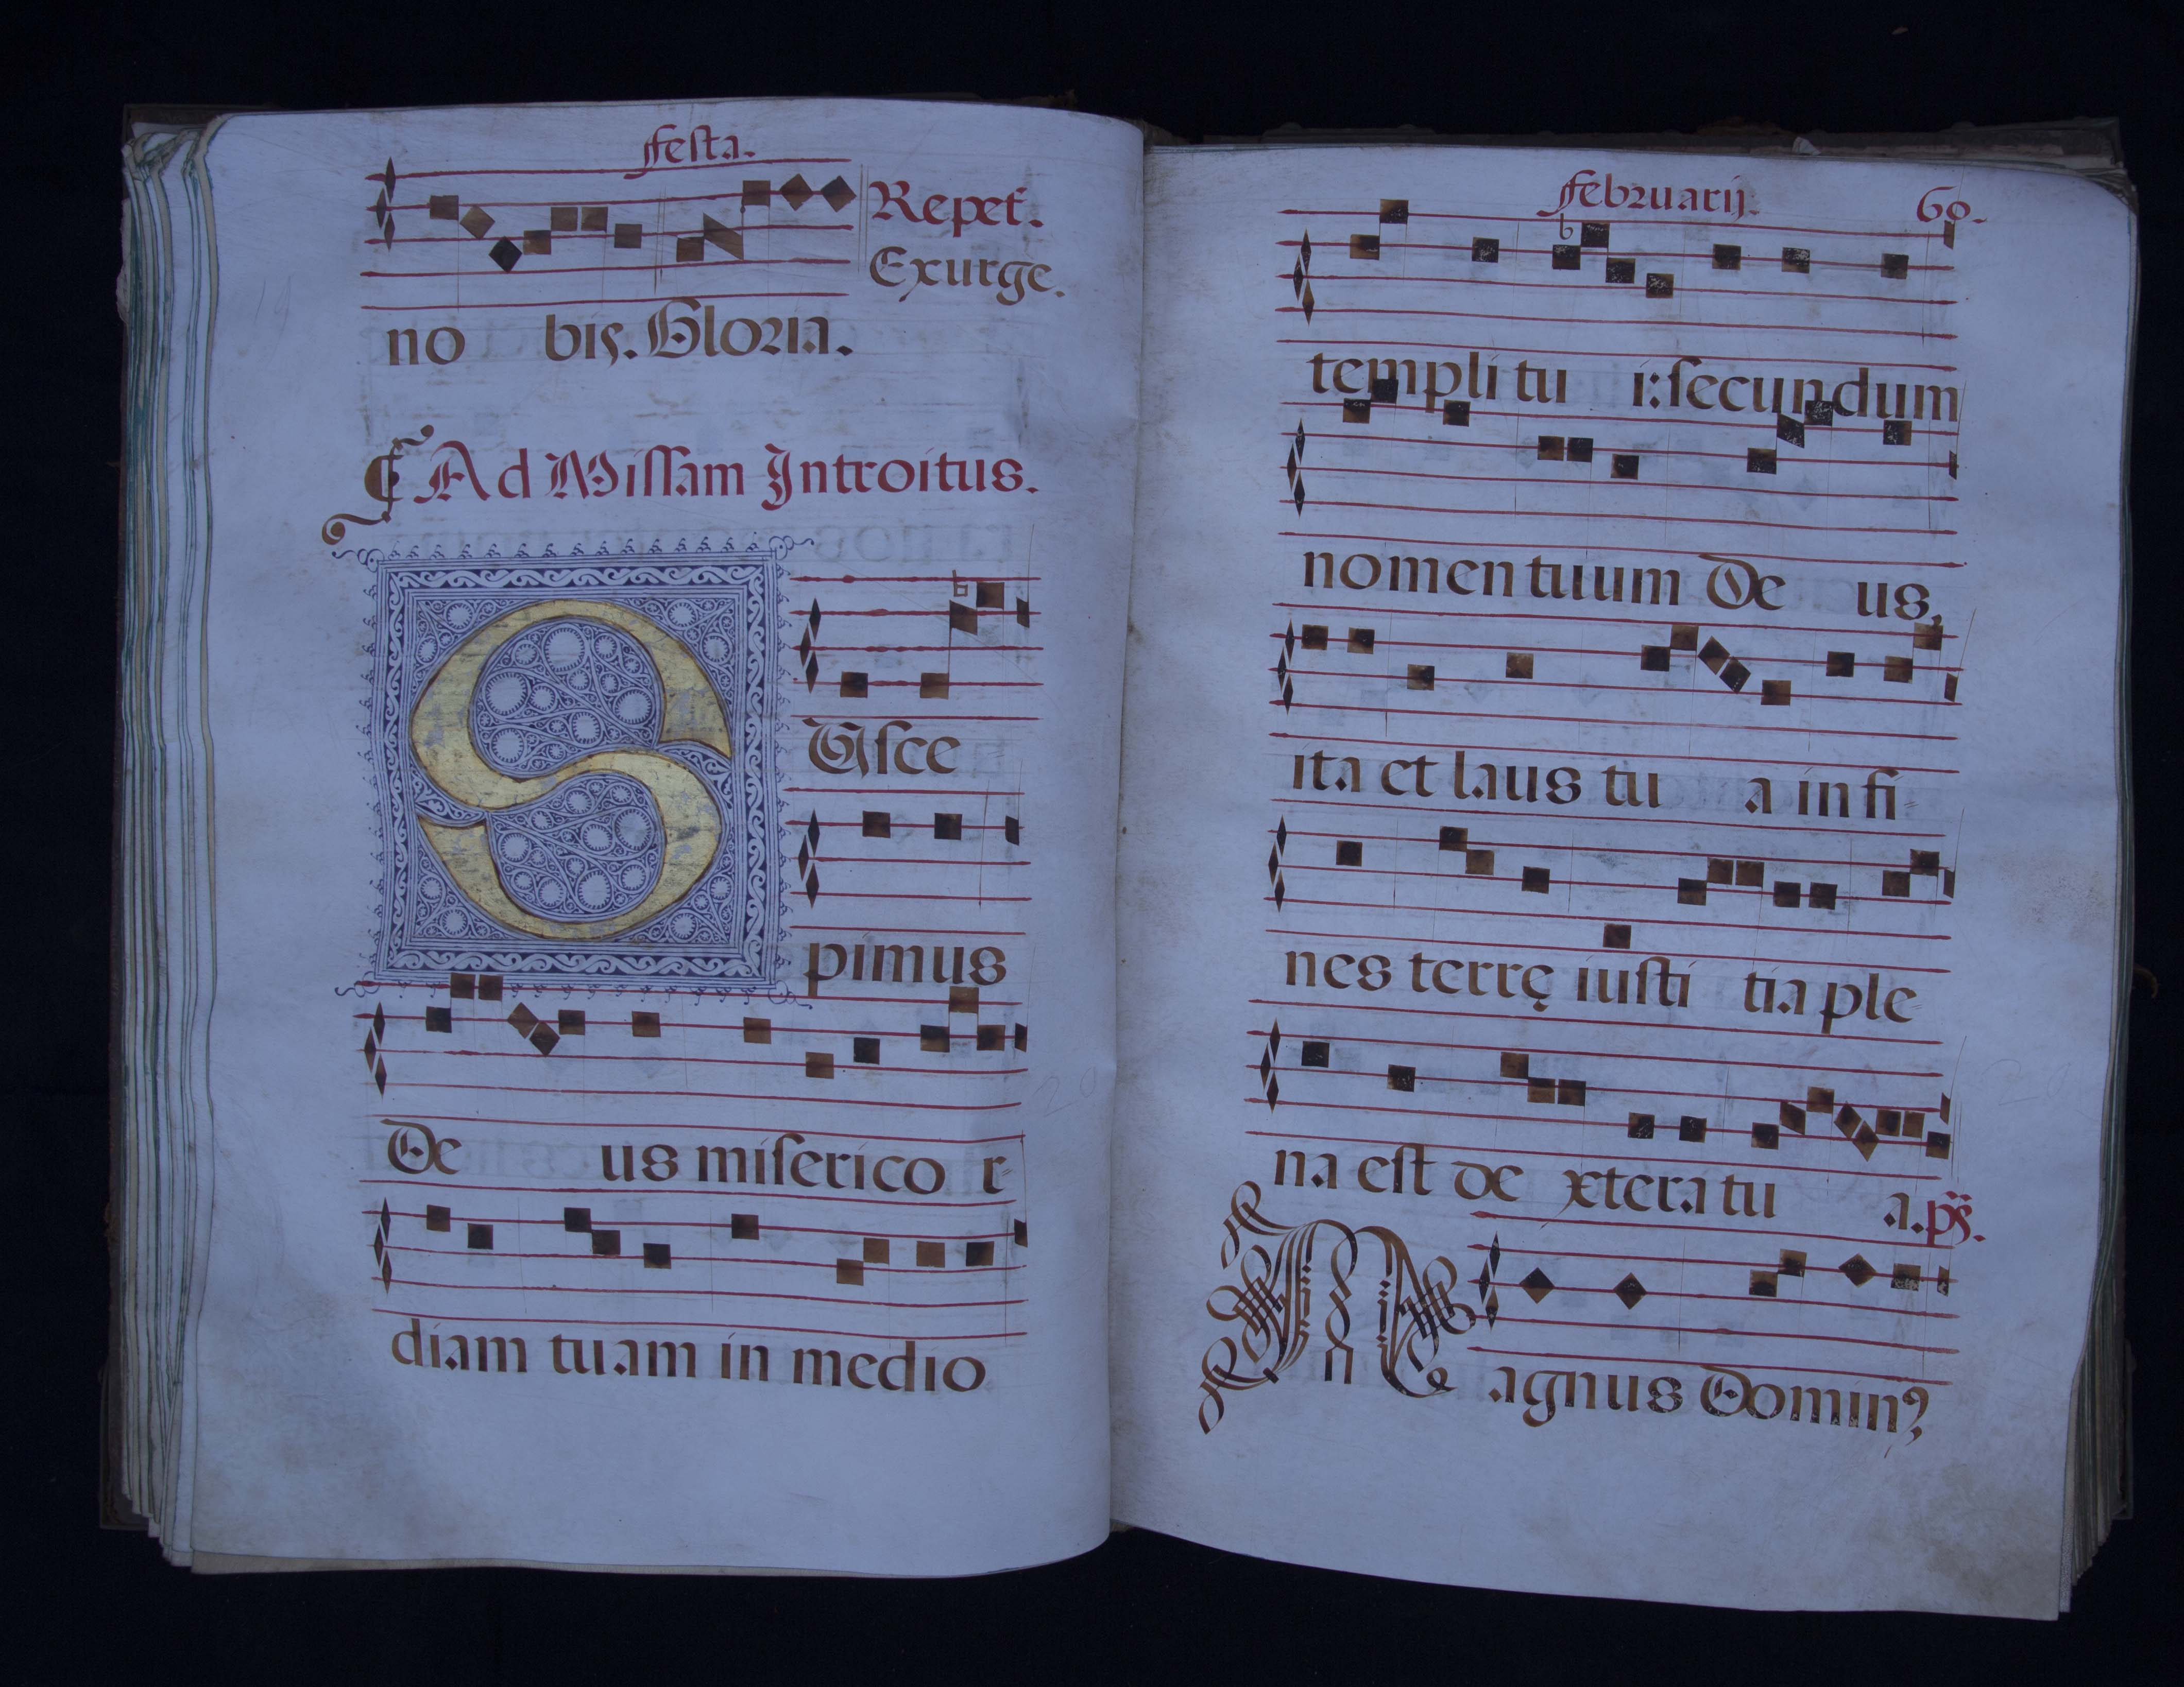 Festa.
Repet.
Exurge.
no bis. Gloria.
Ad Missam Introitus.
SUsce
pimus
De us miserico r-
diam tuam in medio
Februarij. 60.
templi tu i: secundum
nomen tuum De us,
ita et laus tu a in fi-
nes terrę iusti tia ple
na est de xtera tu a. ps.
Magnus Domin⁹